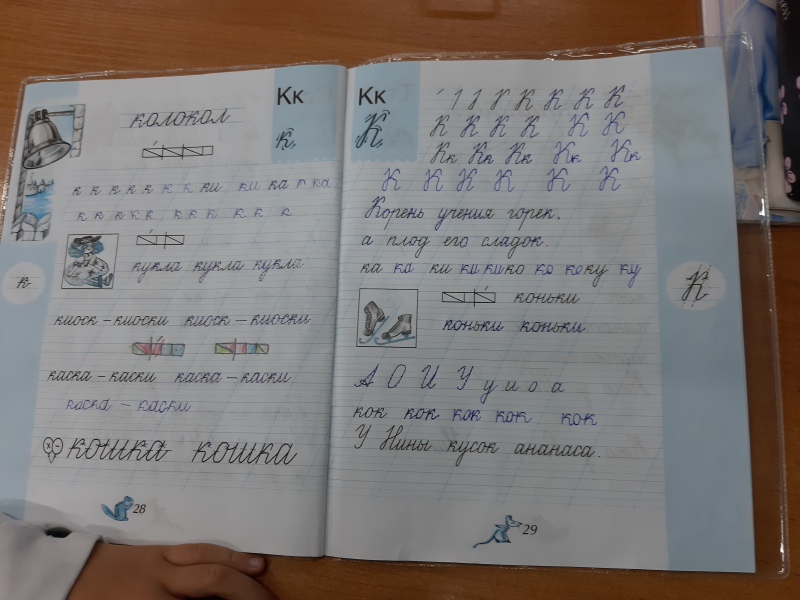 Кк
колокол
к
к к к к к к к ки ки ка к ка
к к к к к к к к к к к
кукла кукла кукла
киоск – киоски киоск – киоски
каска – каски каска – каски
каска – каски
кошка кошка
28
к
Кк
К
К К К К
К К К К К К
Кк Кк Кк Кк Кк
К К К К К К
Корень учения горек,
а плод его сладок.
ка ка ки ки ки ко ко ко ку ку
коньки
коньки коньки
А О И У у и о а
кок кок кок кок кок
У Нины кусок ананаса.
29
К